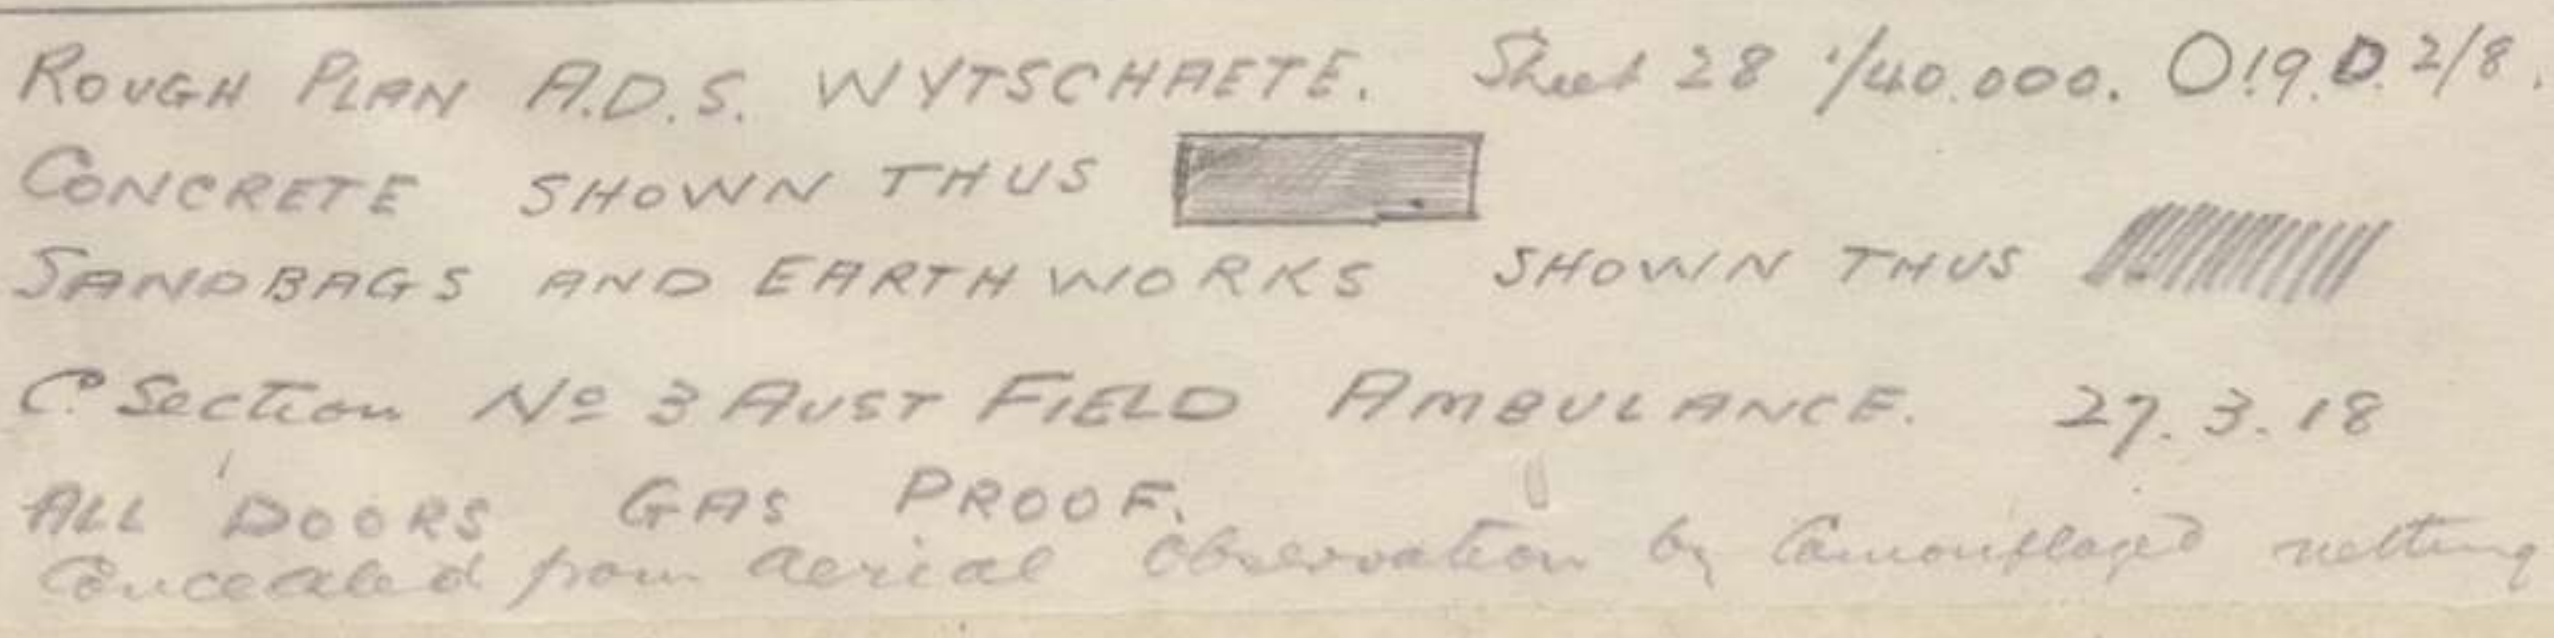 ROUGH PLAN A.D.S. WYTSCHAETE. Sheet 28 1/40.000. O19.D.2/8.
CONCRETE SHOWN THUS
SANDBAGS AND EARTHWORKS SHOWN THUS
C. Section No 3 AUST FIELD AMBULANCE. 27.3.18
ALL DOORS GAS PROOF.
Concealed from aerial observation by Camouflaged netting